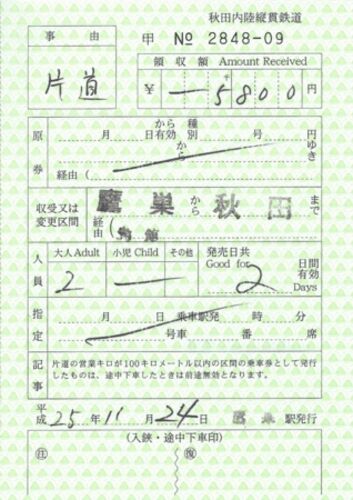 秋田内陸縦貫鉄道
事由
甲 № 2848-09
片道
領収額 Amount Received
¥ 5800 円
原券
から 種
月 日有効 別 号 円
から ゆき
経由(
収受又は
変更区間
鷹巣 から 秋田 まで
経由(角館
人員
大人Adult 小児Child その他 発売日共 日間
Good for 有効
2 2 Days
指定
月 日 乗車駅発 時 分
号車 番 席
記事
片道の営業キロが100キロメートル以内の区間の乗車券として発行
したものは、途中下車したときは前途無効となります。
平成 25年 11月 24日 鷹巣 駅発行
(入鋏・途中下車印)